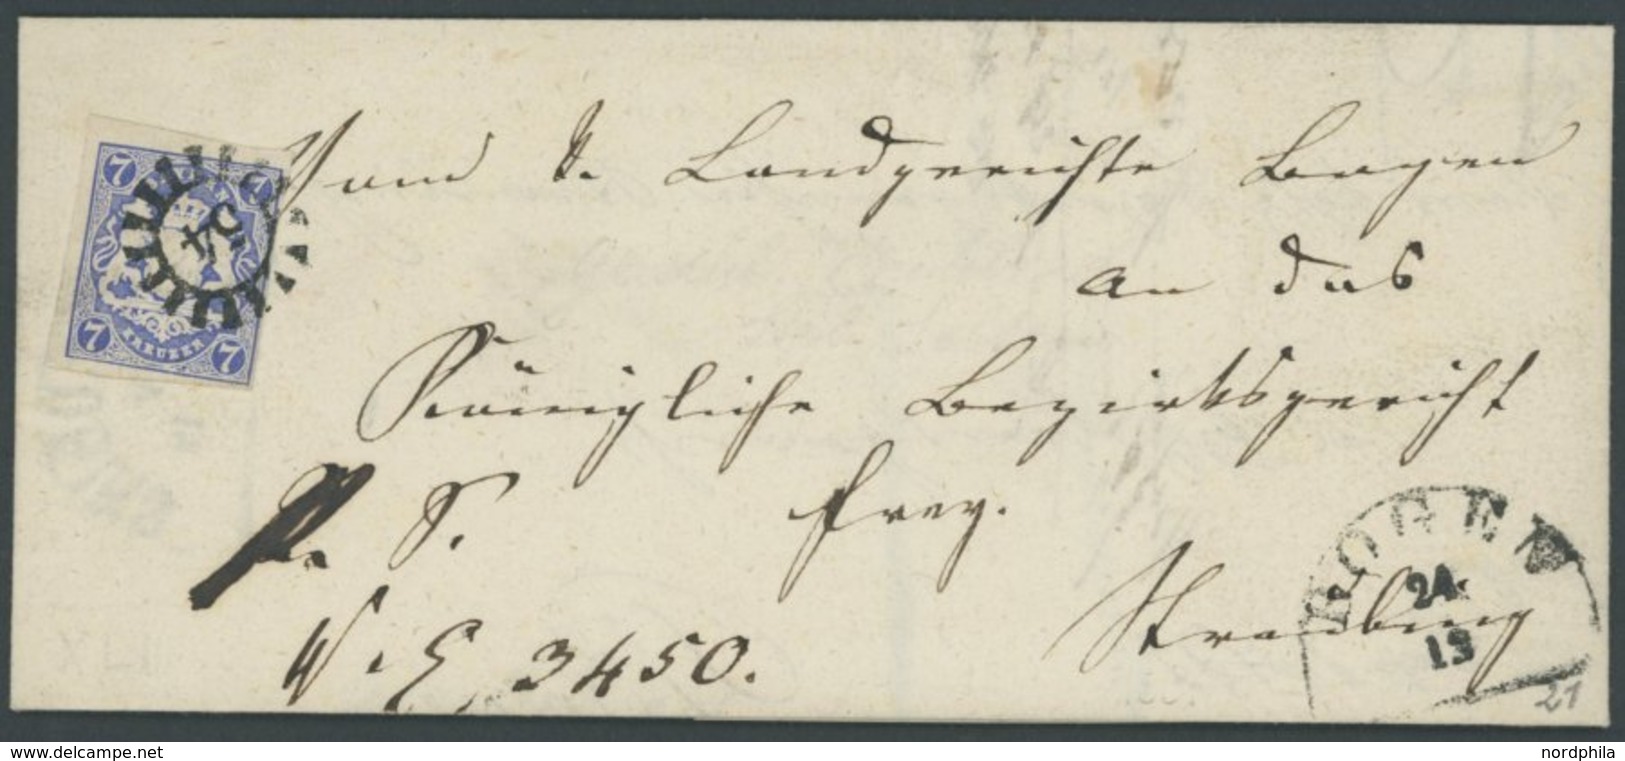 7 7
54
7 KREUZER 7
Vom k. Landgerichte Bogen
an das
Königliche Bezirksgericht
P. S. frey.
Straubing
N. E. 3450.
BOGEN
24
13
21
www.delcampe.net
nordphila